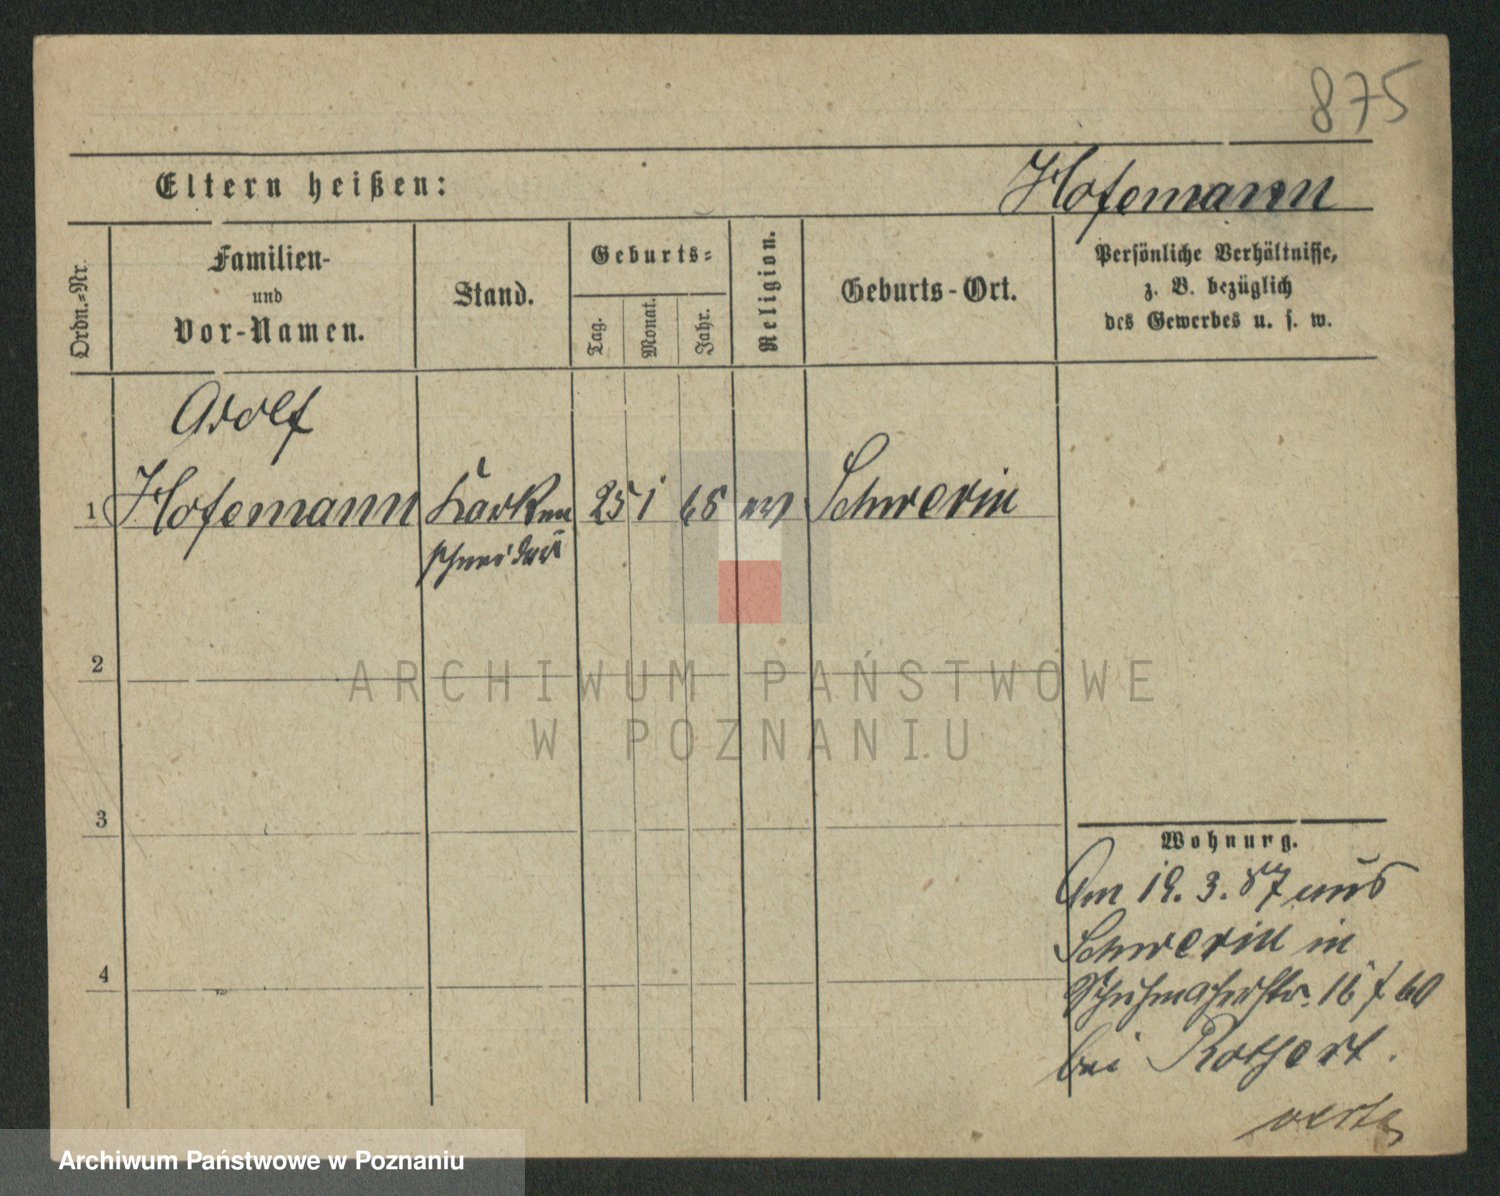 875
Eltern heißen:
Hofemann
Ordn.-Nr.
Familien-
und
Vor-Namen.
Stand.
Geburts-
Tag.
Monat.
Jahr.
Religion.
Geburts-Ort.
Persönliche Verhältnisse,
z. B. bezüglich
des Gewerbes u. s. w.
Adolf
1 Hofemann Korken 25 1 68 ev Schwerin
schneider
2
ARCHIWUM PAŃSTWOWE
W POZNANIU
3
4
Wohnung.
Am 19. 3. 87 aus
Schwerin in
Schuhmacherstr. 16
bei Rothert.
Archiwum Państwowe w Poznaniu